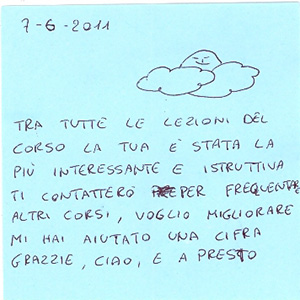 7-6-2011
TRA TUTTE LE LEZIONI DEL
CORSO LA TUA È STATA LA
PIÙ INTERESSANTE E ISTRUTTIVA
TI CONTATTERÒ PER FREQUENTARE
ALTRI CORSI, VOGLIO MIGLIORARE
MI HAI AIUTATO UNA CIFRA
GRAZZIE, CIAO, E A PRESTO